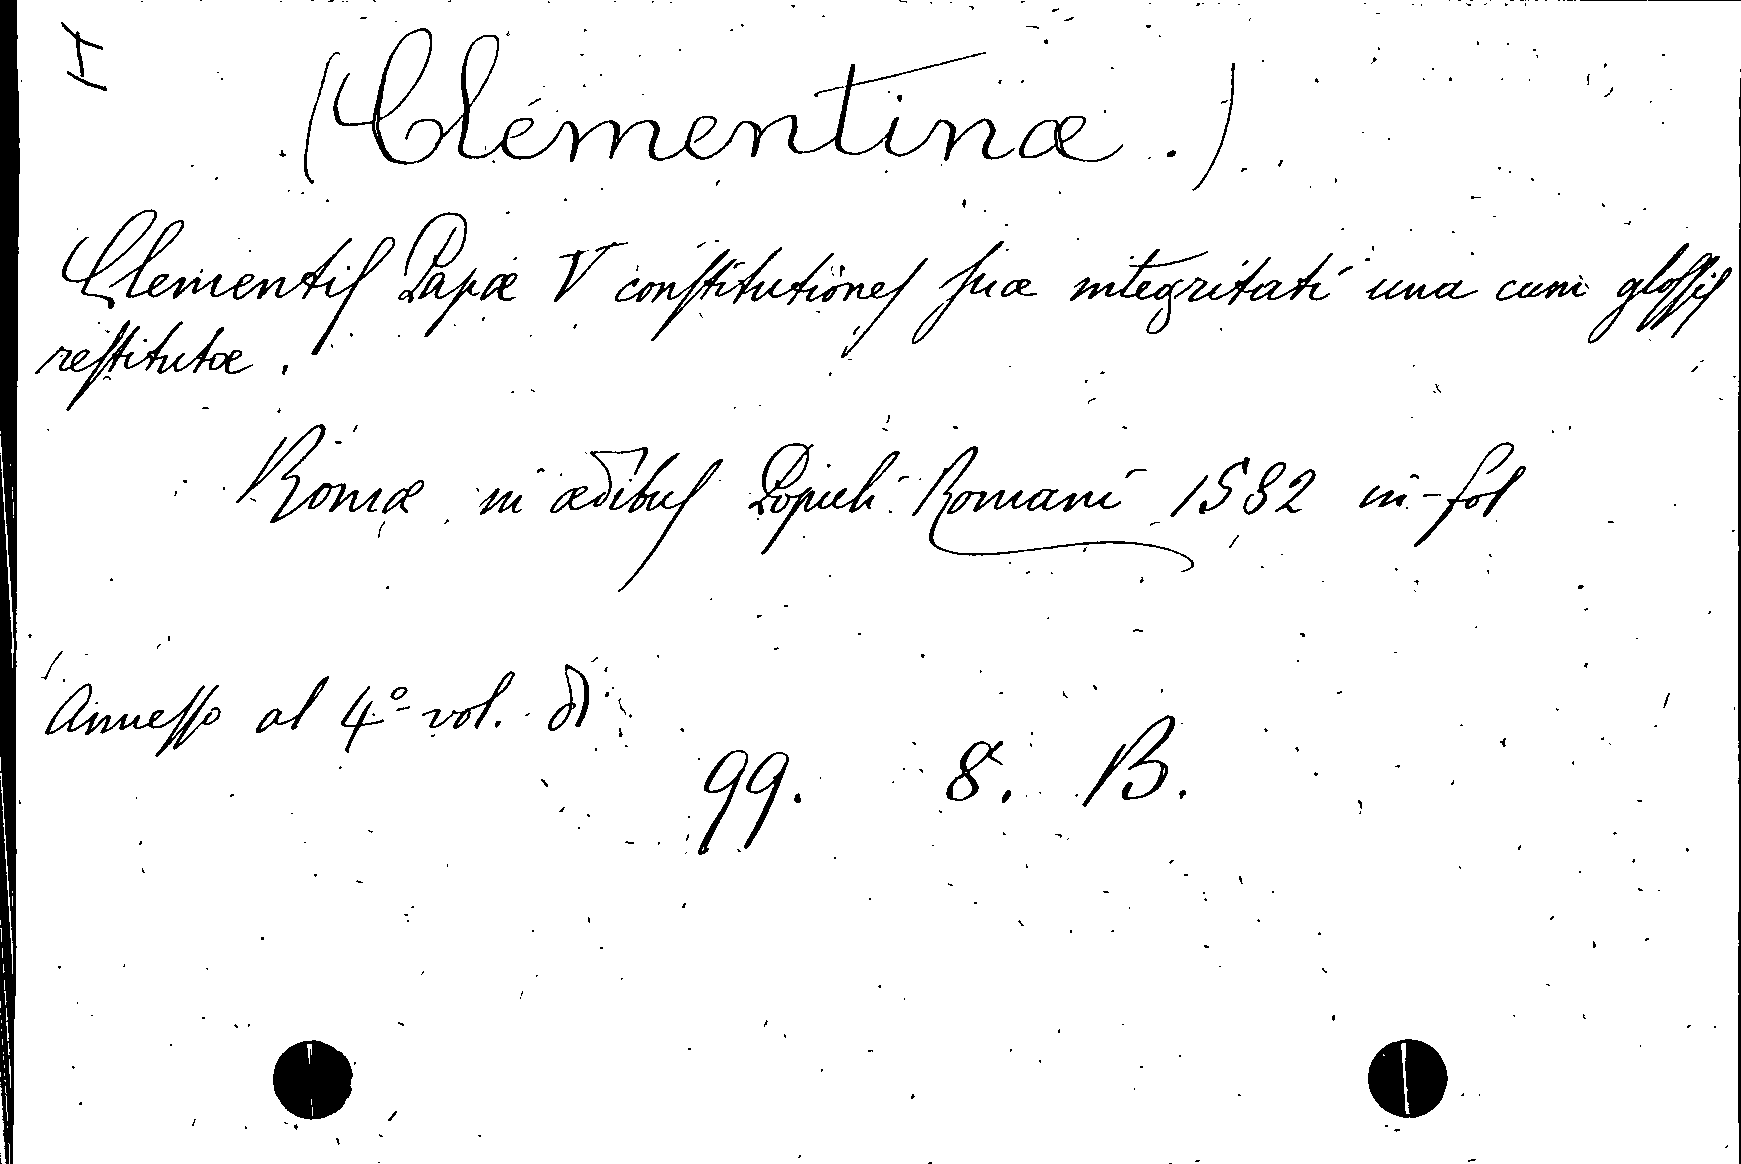 H
(Clementinæ.)
Clementis Papæ V constitutiones suæ integritati una cum glossis
restitutæ.
Romæ in ædibus Populi Romani 1582 in-fol
Annesso al 4º vol. di
99. 8. B.